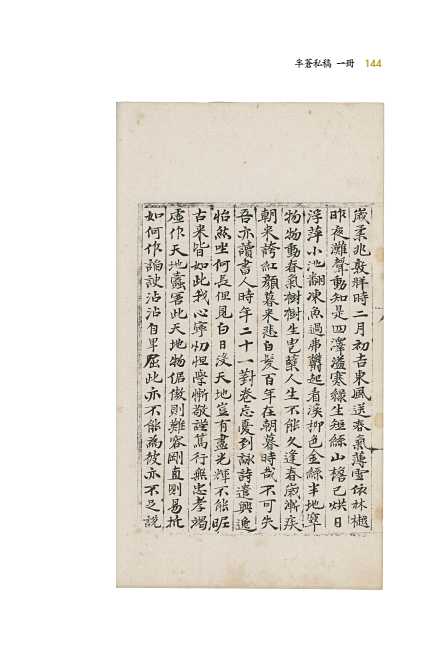 半蒼私稿 一冊 144
歲柔兆敦牂時二月初吉東風送春氣薄雪依林樾
昨夜灘聲動知是四澤溢寒綠生短絲山榴已烘日
浮萍小池翻凍魚過弗欝起看溪柳色金絲半地窣
物物動春氣樹樹生芭蘖人生不能久逢春歲漸疾
朝來誇紅顏暮来悲白髮百年在朝暮時哉不可失
吾亦讀書人時年二十一對卷忘憂到詠詩遣興逸
怡然坐何長但見白日沒天地豈有盡光輝不能昵
古来皆如此我心寧忉怛學慚敬謹篤行無忠孝竭
虛作天地蠹寄此天地物倨傲則難容剛直則易抗
如何作論說沾沾自卑屈此亦不能為彼亦不足說